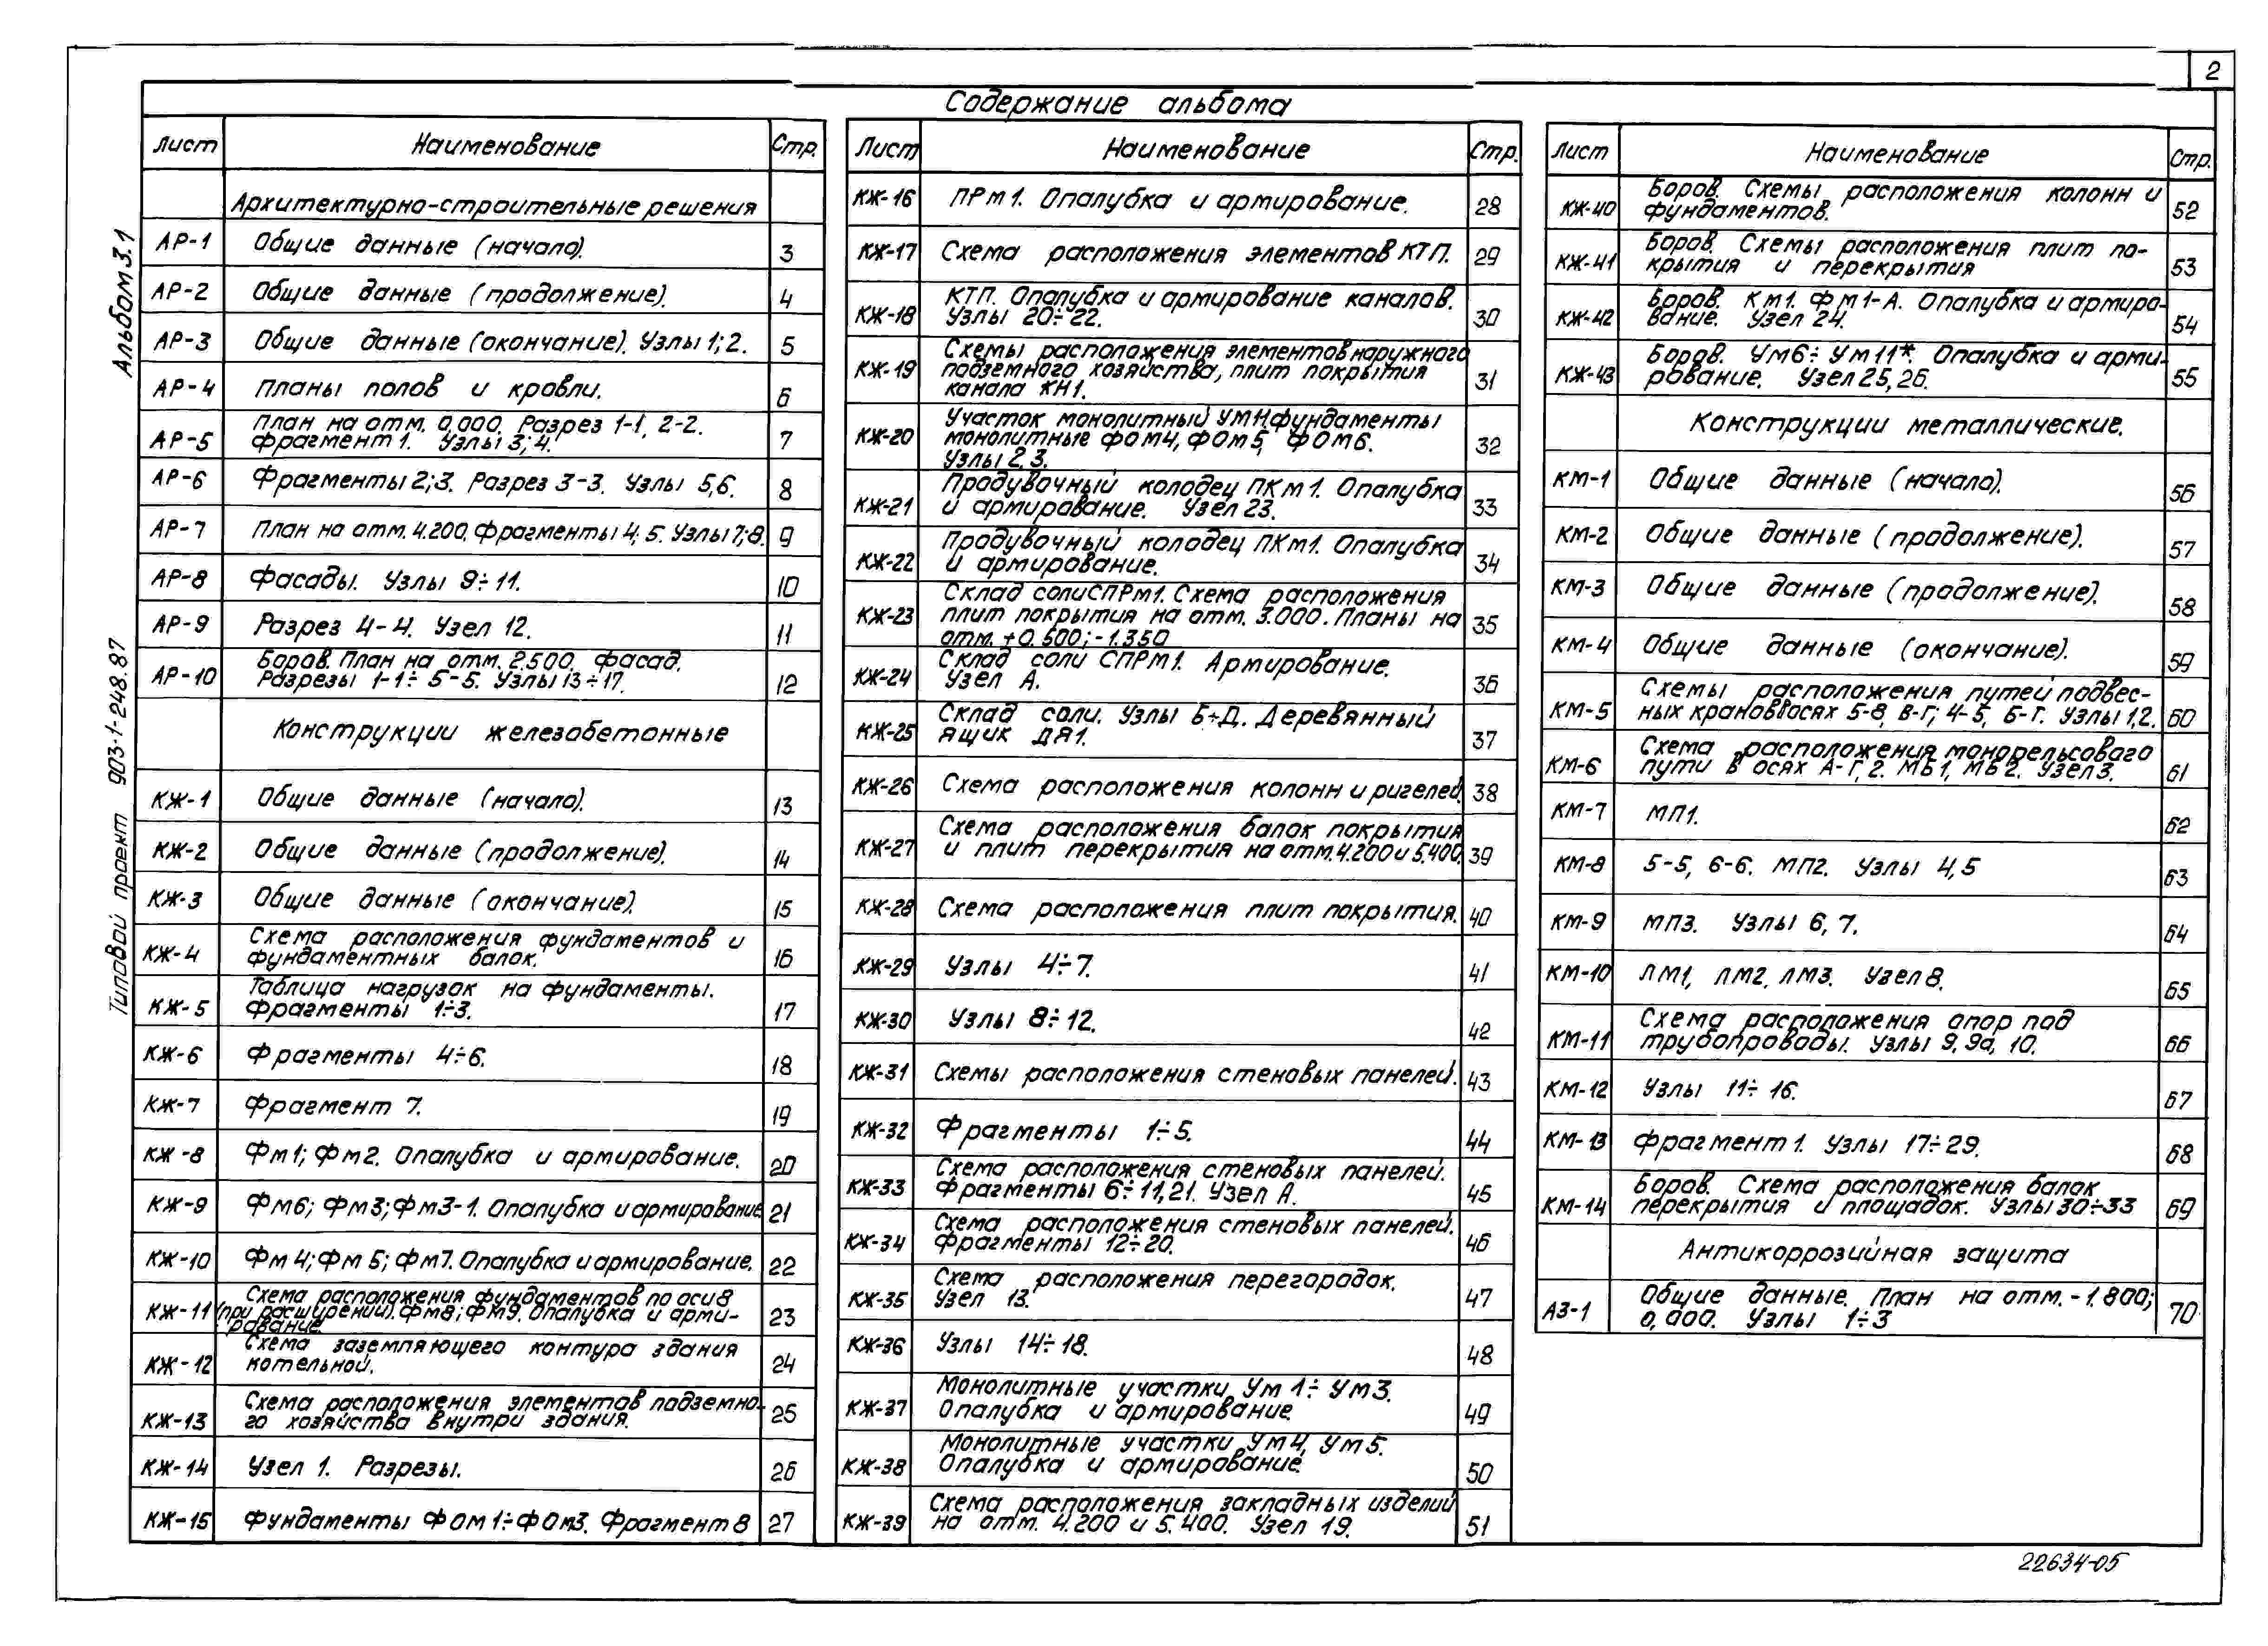 2
Содержание альбома
Альбом 3.1
Типовой проект 903-1-248.87
Лист Наименование Стр.
Архитектурно-строительные решения
АР-1 Общие данные (начало). 3
АР-2 Общие данные (продолжение). 4
АР-3 Общие данные (окончание). Узлы 1; 2. 5
АР-4 Планы полов и кровли. 6
АР-5 План на отм. 0,000. Разрез 1-1, 2-2.
Фрагмент 1. Узлы 3; 4. 7
АР-6 Фрагменты 2; 3. Разрез 3-3. Узлы 5,6. 8
АР-7 План на отм. 4.200. Фрагменты 4; 5. Узлы 7; 8. 9
АР-8 Фасады. Узлы 9÷11. 10
АР-9 Разрез 4-4. Узел 12. 11
АР-10 Боров. План на отм. 2.500. Фасад.
Разрезы 1-1÷5-5. Узлы 13÷17. 12
Конструкции железобетонные
КЖ-1 Общие данные (начало). 13
КЖ-2 Общие данные (продолжение). 14
КЖ-3 Общие данные (окончание). 15
КЖ-4 Схема расположения фундаментов и
фундаментных балок. 16
КЖ-5 Таблица нагрузок на фундаменты.
Фрагменты 1÷3. 17
КЖ-6 Фрагменты 4÷6. 18
КЖ-7 Фрагмент 7. 19
КЖ-8 Фм1; Фм2. Опалубка и армирование. 20
КЖ-9 Фм6; Фм3; Фм3-1. Опалубка и армирование 21
КЖ-10 Фм4; Фм5; Фм7. Опалубка и армирование. 22
КЖ-11 Схема расположения фундаментов по оси 8
(при расширении). Фм8; Фм9. Опалубка и арми-
рование. 23
КЖ-12 Схема заземляющего контура здания
котельной. 24
КЖ-13 Схема расположения элементов подземно-
го хозяйства внутри здания. 25
КЖ-14 Узел 1. Разрезы. 26
КЖ-15 Фундаменты ФОм1÷ФОм3. Фрагмент 8 27
Лист Наименование Стр.
КЖ-16 ПРм1. Опалубка и армирование. 28
КЖ-17 Схема расположения элементов КТП. 29
КЖ-18 КТП. Опалубка и армирование каналов.
Узлы 20÷22. 30
КЖ-19 Схемы расположения элементов наружного
подземного хозяйства, плит покрытия
канала КН1. 31
КЖ-20 Участок монолитный УМ11, фундаменты
монолитные ФОм4, ФОм5, ФОм6.
Узлы 2,3. 32
КЖ-21 Продувочный колодец ПКм1. Опалубка
и армирование. Узел 23. 33
КЖ-22 Продувочный колодец ПКм1. Опалубка
и армирование. 34
КЖ-23 Склад соли СПРм1. Схема расположения
плит покрытия на отм. 3.000. Планы на
отм. +0.500; -1.350 35
КЖ-24 Склад соли СПРм1. Армирование.
Узел А. 36
КЖ-25 Склад соли. Узлы Б÷Д. Деревянный
ящик ДЯ1. 37
КЖ-26 Схема расположения колонн и ригелей. 38
КЖ-27 Схема расположения балок покрытия
и плит перекрытия на отм. 4.200 и 5.400. 39
КЖ-28 Схема расположения плит покрытия. 40
КЖ-29 Узлы 4÷7. 41
КЖ-30 Узлы 8÷12. 42
КЖ-31 Схемы расположения стеновых панелей. 43
КЖ-32 Фрагменты 1÷5. 44
КЖ-33 Схема расположения стеновых панелей.
Фрагменты 6÷11, 21. Узел А. 45
КЖ-34 Схема расположения стеновых панелей.
Фрагменты 12÷20. 46
КЖ-35 Схема расположения перегородок.
Узел 13. 47
КЖ-36 Узлы 14÷18. 48
КЖ-37 Монолитные участки Ум1÷Ум3.
Опалубка и армирование. 49
КЖ-38 Монолитные участки Ум4, Ум5.
Опалубка и армирование. 50
КЖ-39 Схема расположения закладных изделий
на отм. 4.200 и 5.400. Узел 19. 51
Лист Наименование Стр.
КЖ-40 Боров. Схемы расположения колонн и
фундаментов. 52
КЖ-41 Боров. Схемы расположения плит по-
крытия и перекрытия 53
КЖ-42 Боров. Км1. Фм1-А. Опалубка и армиро-
вание. Узел 24. 54
КЖ-43 Боров. Ум6÷Ум11*. Опалубка и арми-
рование. Узел 25, 26. 55
Конструкции металлические.
КМ-1 Общие данные (начало). 56
КМ-2 Общие данные (продолжение). 57
КМ-3 Общие данные (продолжение). 58
КМ-4 Общие данные (окончание). 59
КМ-5 Схемы расположения путей подвес-
ных кранов в осях 5-8, В-Г; 4-5, Б-Г. Узлы 1,2. 60
КМ-6 Схема расположения монорельсового
пути в осях А-Г, 2. МБ1, МБ2. Узел 3. 61
КМ-7 МП1. 62
КМ-8 5-5, 6-6. МП2. Узлы 4,5 63
КМ-9 МП3. Узлы 6, 7. 64
КМ-10 ЛМ1, ЛМ2, ЛМ3. Узел 8. 65
КМ-11 Схема расположения опор под
трубопроводы. Узлы 9, 9а, 10. 66
КМ-12 Узлы 11÷16. 67
КМ-13 Фрагмент 1. Узлы 17÷29. 68
КМ-14 Боров. Схема расположения балок
перекрытия и площадок. Узлы 30÷33 69
Антикоррозийная защита
АЗ-1 Общие данные. План на отм. -1.800;
0,000. Узлы 1÷3 70
22634-05